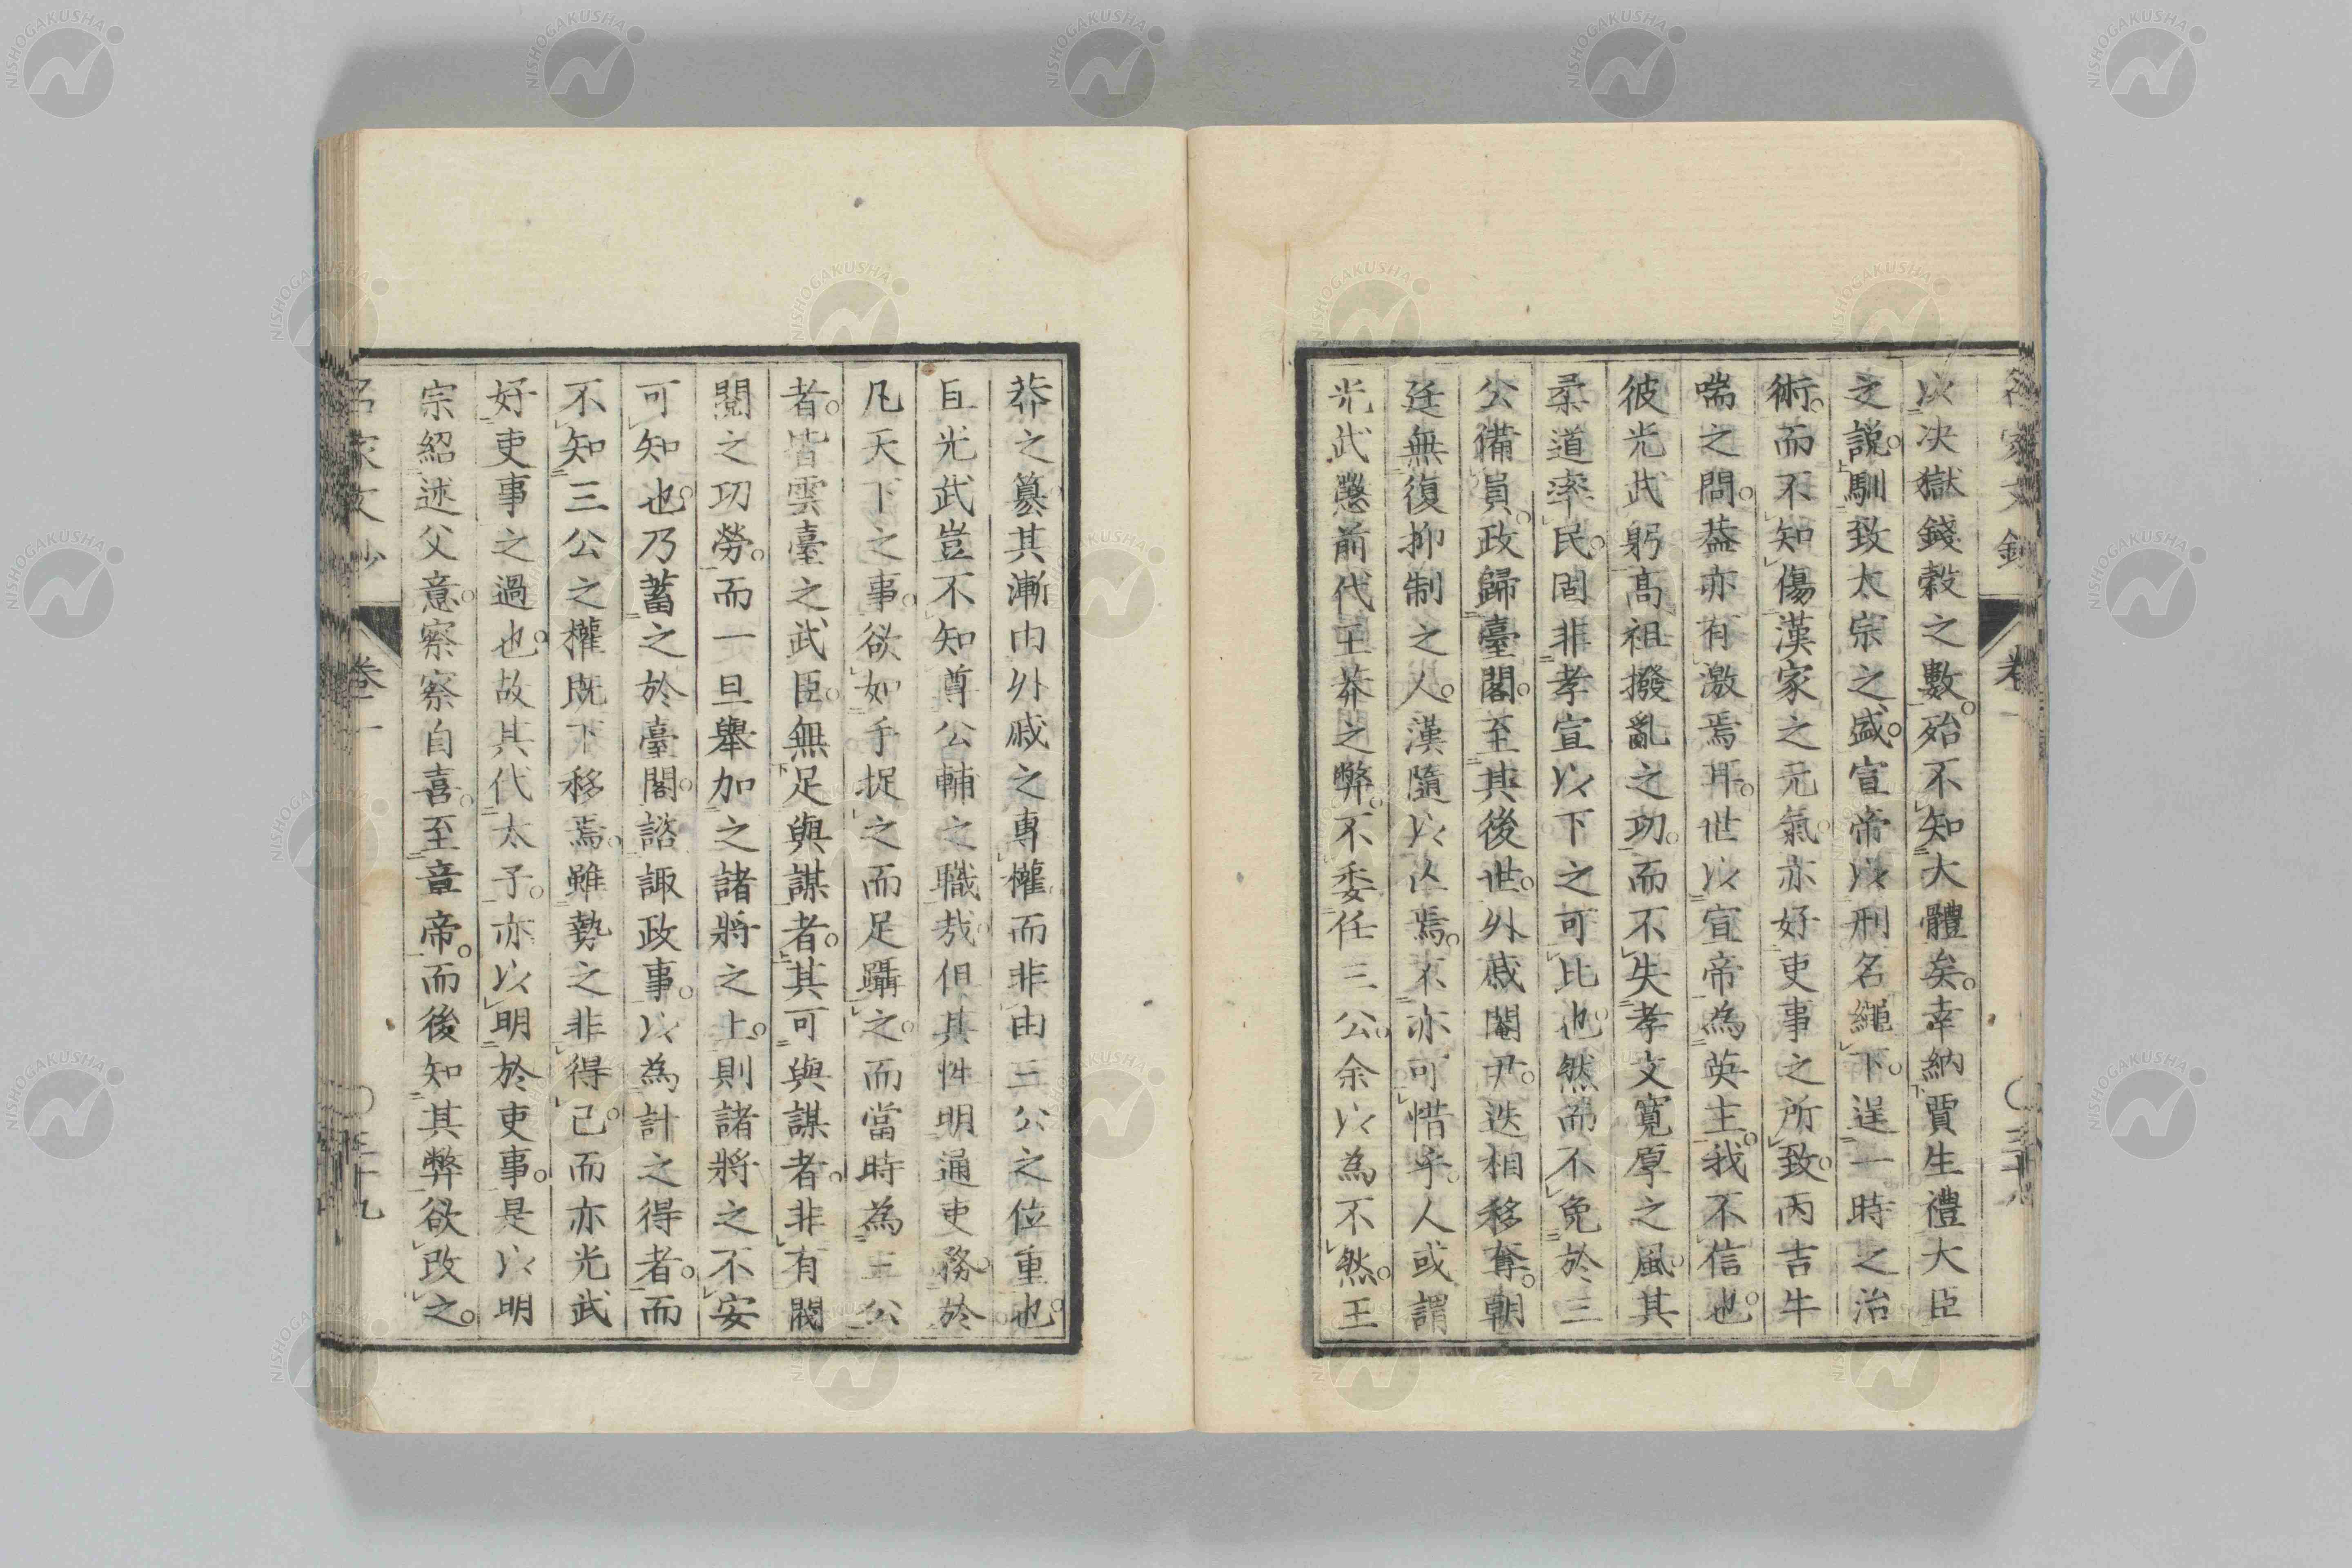 名家文鈔 卷一 〇三十八
以决獄錢穀之數。殆不知大體矣。幸納賈生禮大臣
之說。馴致太宗之盛。宣帝以刑名繩下。逞一時之治
術。而不知傷漢家之元氣。亦好吏事之所致。丙吉牛
喘之問。葢亦有激焉耳。世以宣帝為英主。我不信也。
彼光武躬高祖撥亂之功。而不失孝文寬厚之風。其
柔道率民。固非孝宣以下之可比也。然而不免於三
公備員。政歸臺閣。至其後世。外戚閹尹。迭相移奪。朝
廷無復抑制之人。漢隨以亡焉。不亦可惜乎。人或謂
光武懲前代王莽之弊。不委任三公。余以為不然。王
莽之篡其漸由外戚之專權。而非由三公之位重也。
且光武豈不知尊公輔之職哉。但其性明通吏務。於
凡天下之事。欲如手捉之而足躡之。而當時為三公
者。皆雲臺之武臣。無足與謀者。其可與謀者。非有閥
閱之功勞。而一旦舉加之諸將之上。則諸將之不安
可知也。乃蓄之於臺閣。諮諏政事。以為計之得者。而
不知三公之權既下移焉。雖勢之非得已。而亦光武
好吏事之過也。故其代太子。亦以明於吏事。是以明
宗紹述父意。察察自喜。至章帝。而後知其弊欲改之。
名家文鈔 卷一 〇三十九
NISHOGAKUSHA